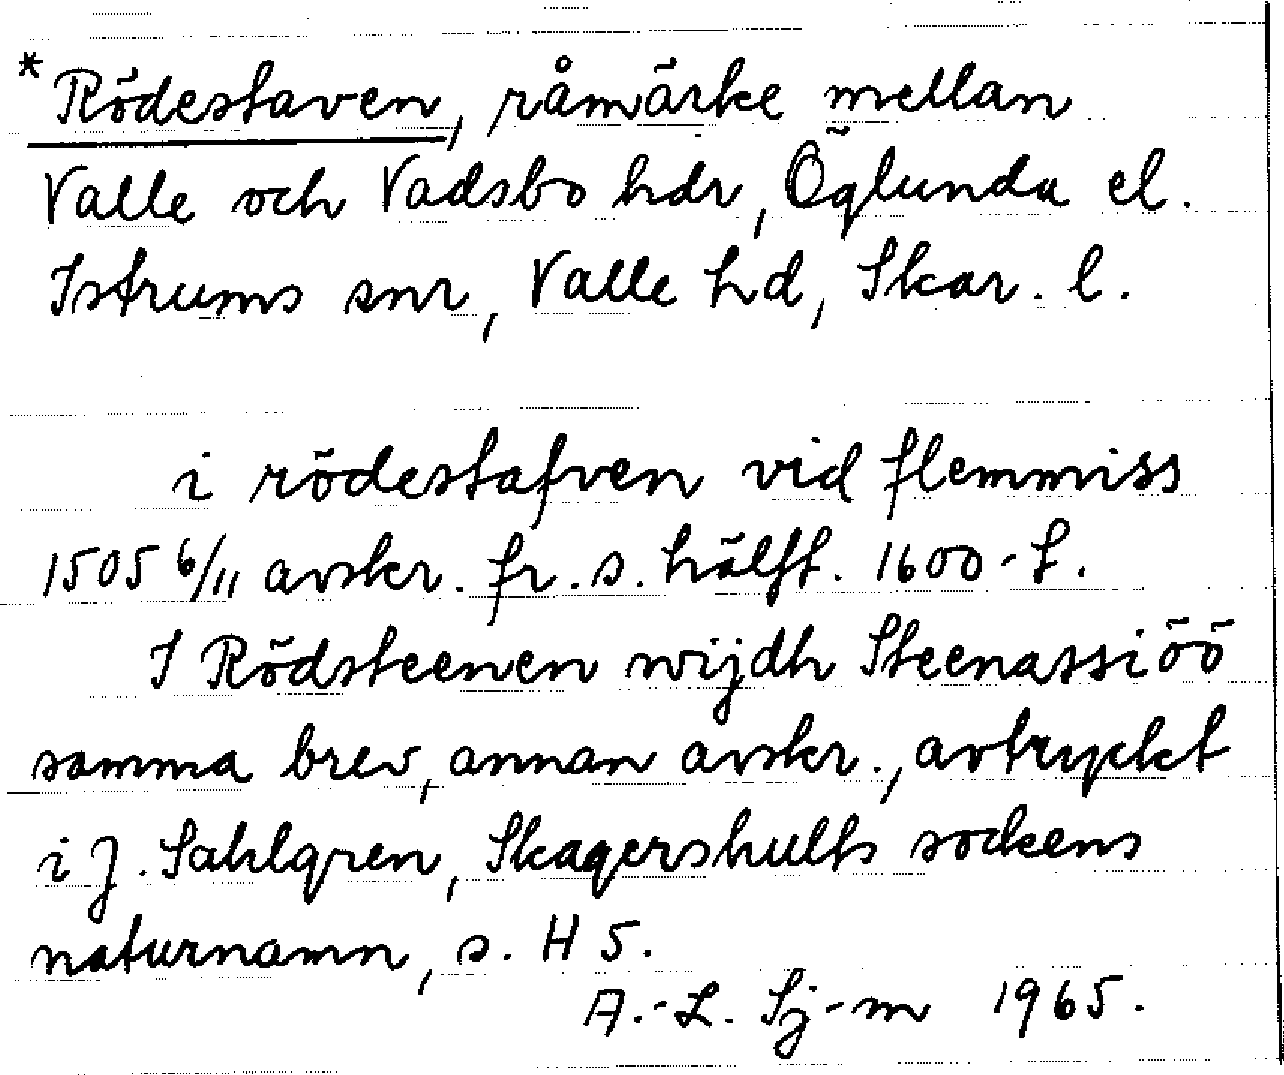 *Rödestaven, råmärke mellan
Valle och Vadsbo hdr, Öglunda el.
Istrums snr, Valle hd, Skar. l.
i rödestafven vid flemmiss
1505 6/11 avskr. fr. s. hälft. 1600-t.
I Rödsteenen wijdh Steenassiöö
samma brev, annan avskr., avtryckt
i J. Sahlgren, Skagershults sockens
naturnamn, s. H 5.
A.-L. Sj-m 1965.